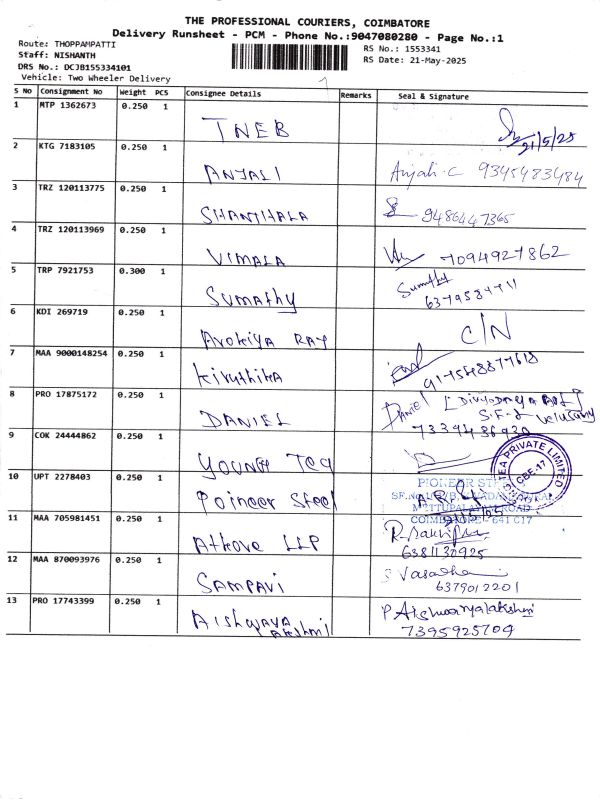 THE PROFESSIONAL COURIERS, COIMBATORE
Delivery Runsheet - PCM - Phone No.:9047080280 - Page No.:1
Route: THOPPAMPATTI
Staff: NISHANTH
DRS No.: DCJB155334101
Vehicle: Two Wheeler Delivery
RS No.: 1553341
RS Date: 21-May-2025
S No Consignment No Weight PCS Consignee Details Remarks Seal & Signature
1 MTP 1362673 0.250 1 TNEB 21/5/25
2 KTG 7183105 0.250 1 ANJALI Anjali.C 9345483484
3 TRZ 120113775 0.250 1 SHANTHALA 9486447365
4 TRZ 120113969 0.250 1 VIMALA 7094927862
5 TRP 7921753 0.300 1 Sumathy Sumathy
6 KDI 269719 0.250 1 Arokiya RAJ C/N
7 MAA 9000148254 0.250 1 Kiruthika
8 PRO 17875172 0.250 1 DANIEL Daniel
7339436930
9 COK 24444862 0.250 1 YOUNG TEA
TEA PRIVATE LIMITED
CBE-17
10 UPT 2278403 0.250 1 Poineer Steel
PIONEER
METTUPALAYAM ROAD
COIMBATORE - 641 017
11 MAA 705981451 0.250 1 Atkove LLP
6381130925
12 MAA 870093976 0.250 1 SAMPAVI
6379012201
13 PRO 17743399 0.250 1 AIshwaya Lakshmi P Aishwaryalakshmi
7395925709